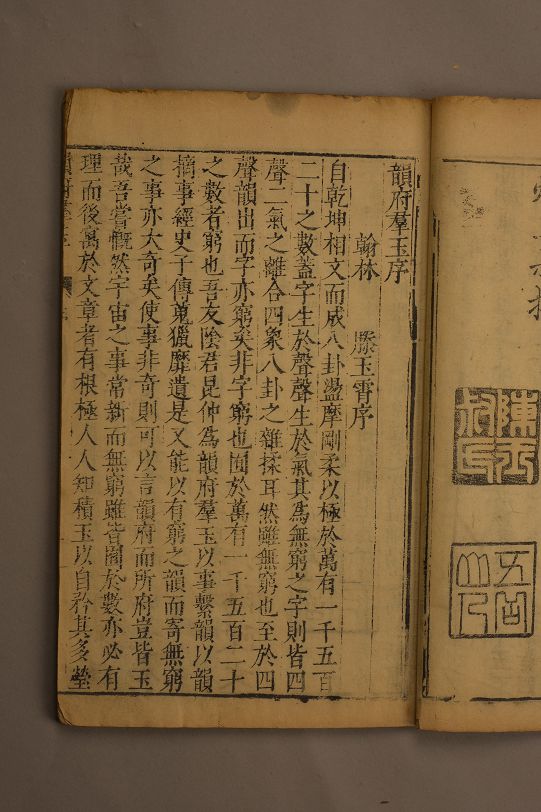 韻府羣玉序
翰林　滕玉霄序
自乾坤相文而成八卦盪摩剛柔以極於萬有一千五百
二十之數蓋字生於聲聲生於氣其為無窮之字則皆四
聲二氣之離合四象八卦之雜揉耳然雖無窮也至於四
聲韻出而字亦窮矣非字窮也囿於萬有一千五百二十
之數者窮也吾友陰君昆仲為韻府羣玉以事繫韻以韻
摘事經史子傳蒐獵靡遺是又能以有窮之韻而寄無窮
之事亦大奇矣使事非奇則可以言韻府而所府豈皆玉
哉吾嘗慨然宇宙之事常新而無窮雖皆囿於數亦必有
理而後寓於文章者有根極人人知積玉以自矜其多瑩
韻府羣玉